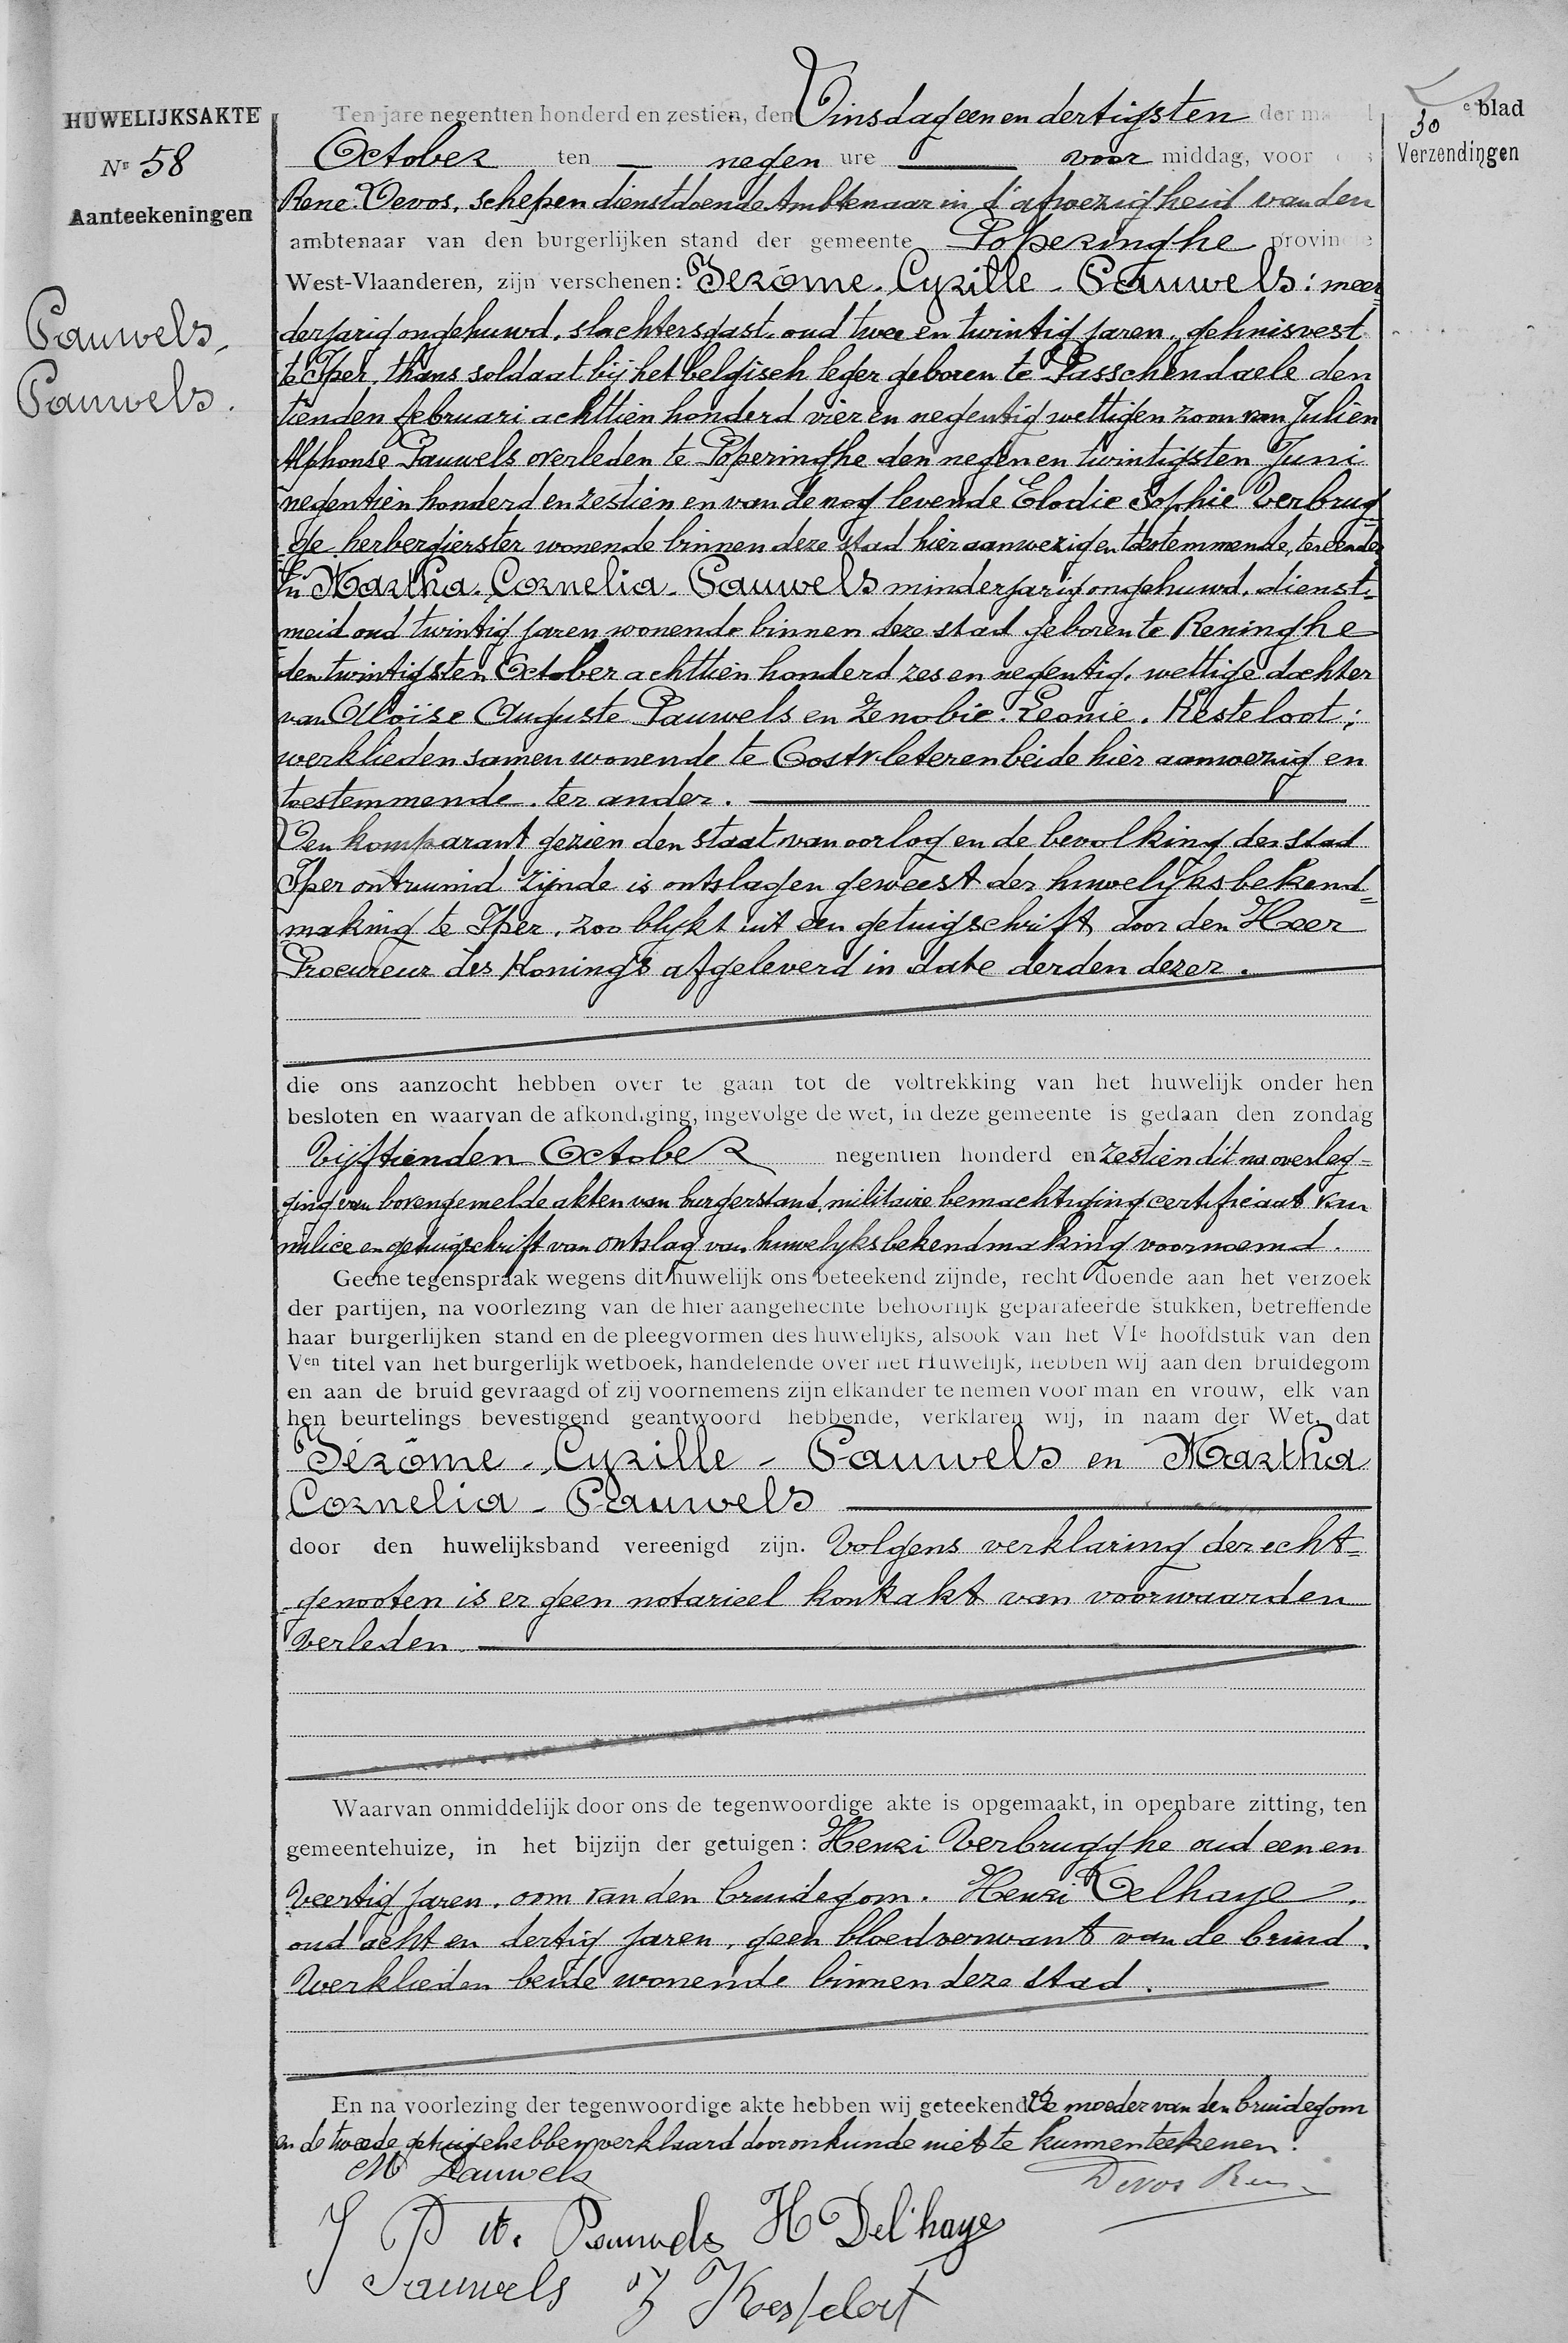 HUWELIJKSAKTE
Nr 58
Aanteekeningen
Pauwels,
Pauwels.
30 e blad
Verzendingen
Ten jare negentien honderd en zestien, den Dinsdag een en dertigsten der
October ten — negen ure — voor middag, voor
René Devos, schepen dienstdoende Ambtenaar in d'afwezigheid van den
ambtenaar van den burgerlijken stand der gemeente Poperinghe provincie
West-Vlaanderen, zijn verschenen: Jerôme - Cyrille - Pauwels: meer
derjarig ongehuwd, slachtersgast, oud twee en twintig jaren, gehuisvest
te Iper, thans soldaat bij het belgisch leger geboren te Passchendaele den
tienden februari achttien honderd vier en negentig wettigen zoon van Julien
Alphonse Pauwels overleden te Poperinghe den negen en twintigsten Juni
negentien honderd en zestien en van de nog levende Elodie Sophie Verbrug
ge herbergierster wonende binnen deze stad hier aanwezig en toestemmende, ter eender
En Martha Cornelia Pauwels minderjarig ongehuwd, dienst-
meid oud twintig jaren wonende binnen deze stad geboren te Reninghe
den twintigsten October achttien honderd zes en negentig, wettige dochter
van Aloïse Auguste Pauwels en Zenobie Leonie Kesteloot;
werklieden samen wonende te Oostvleteren beide hier aanwezig en
toestemmende. ter ander.
Den komparant gezien den staat van oorlog en de bevolking der stad
Iper ontruimd zijnde is ontslagen geweest der huwelijksbekend=
making te Iper, zoo blykt uit een getuigschrift door den Heer
Procureur des Konings afgeleverd in date derden dezer.
die ons aanzocht hebben over te gaan tot de voltrekking van het huwelijk onder hen
besloten en waarvan de afkondiging, ingevolge de wet, in deze gemeente is gedaan den zondag
Vijftienden October negentien honderd en zestien dit na overleg=
ging van bovengemelde akten van burgerstand, militaire bemachtiging certificaat van
milice en getuigschrift van ontslag van huwelyksbekendmaking voornoemd.
Geene tegenspraak wegens dit huwelijk ons beteekend zijnde, recht doende aan het verzoek
der partijen, na voorlezing van de hier aangehechte behoorlijk geparafeerde stukken, betreffende
haar burgerlijken stand en de pleegvormen des huwelijks, alsook van het VIe hoofdstuk van den
Ven titel van het burgerlijk wetboek, handelende over het Huwelijk, hebben wij aan den bruidegom
en aan de bruid gevraagd of zij voornemens zijn elkander te nemen voor man en vrouw, elk van
hen beurtelings bevestigend geantwoord hebbende, verklaren wij, in naam der Wet, dat
Jérôme - Cyrille - Pauwels en Martha
Cornelia - Pauwels
door den huwelijksband vereenigd zijn. Volgens verklaring der echt=
genooten is er geen notarieel kontrakt van voorwaarden
verleden.
Waarvan onmiddelijk door ons de tegenwoordige akte is opgemaakt, in openbare zitting, ten
gemeentehuize, in het bijzijn der getuigen: Henri Verbrugghe oud een en
veertig jaren, oom van den bruidegom. Henri Delhaye,
oud acht en dertig jaren, geen bloedverwant van de bruid.
Werklieden beide wonende binnen deze stad.
En na voorlezing der tegenwoordige akte hebben wij geteekend De moeder van den bruidegom
en de tweede getuige hebben verklaard door onkunde niet te kunnen teekenen.
M Pauwels
Devos
J P A. Pauwels H Del'haye
Pauwels Z Kesteloot